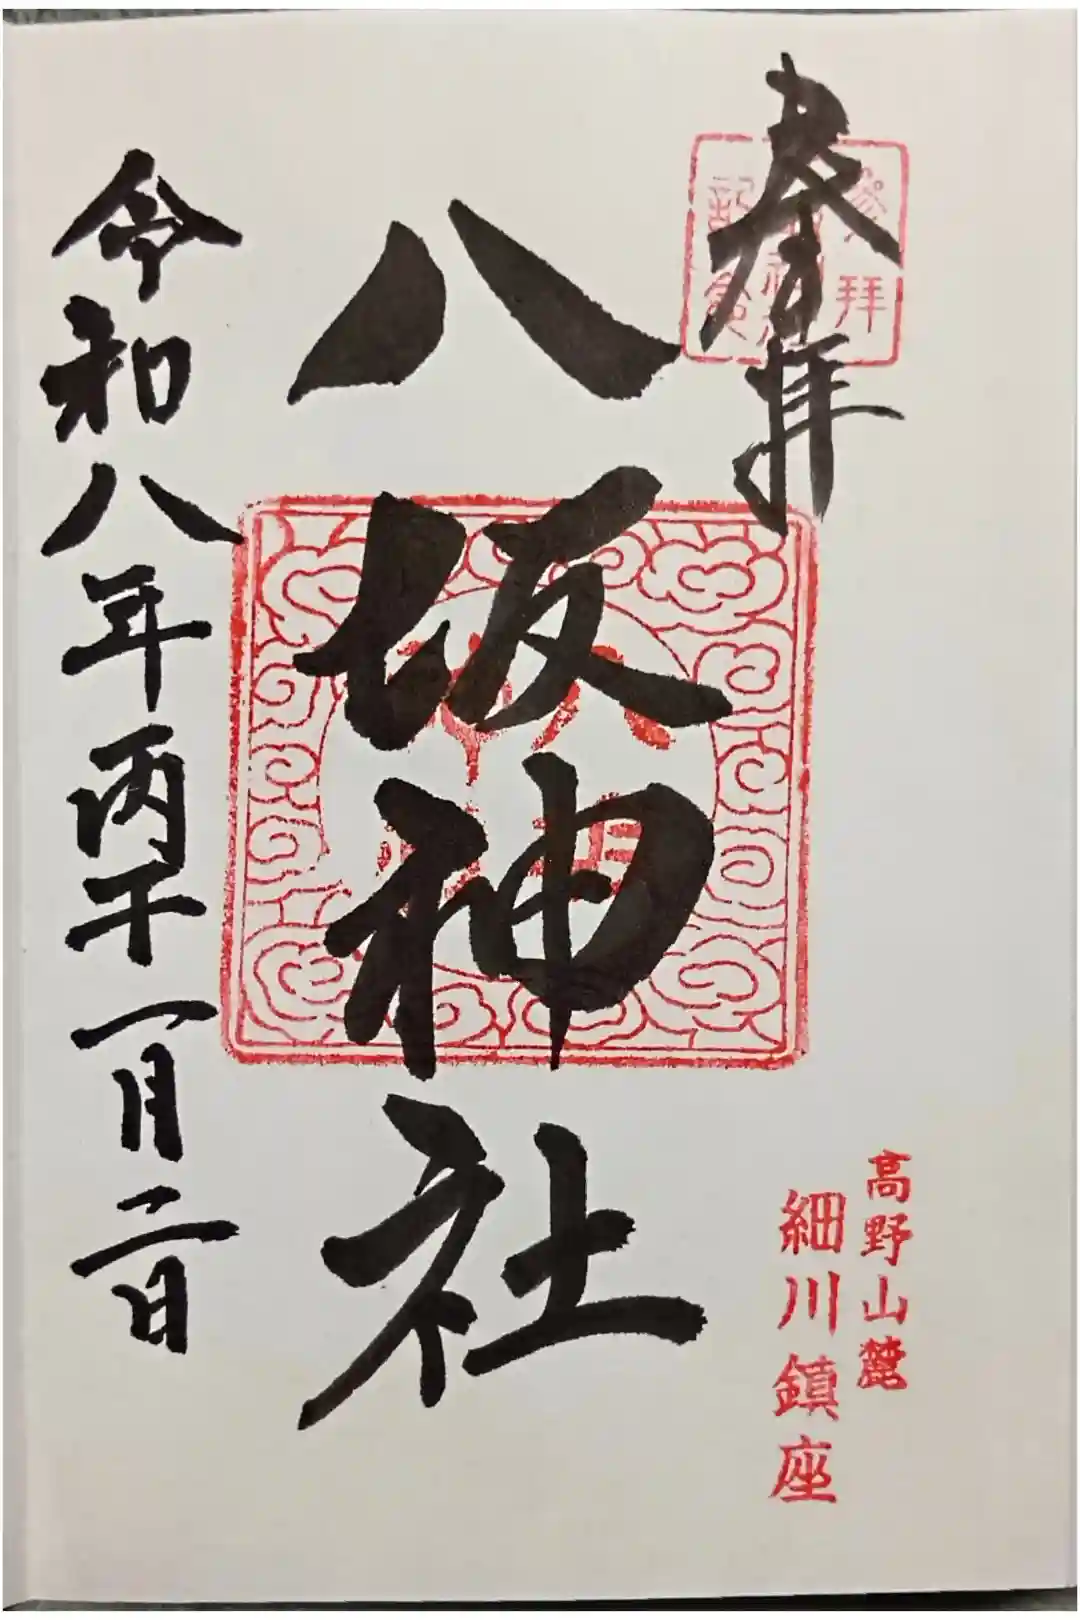 奉拝
参拝
記念
高野山麓
細川鎮座
八坂神社
令和八年丙午一月二日